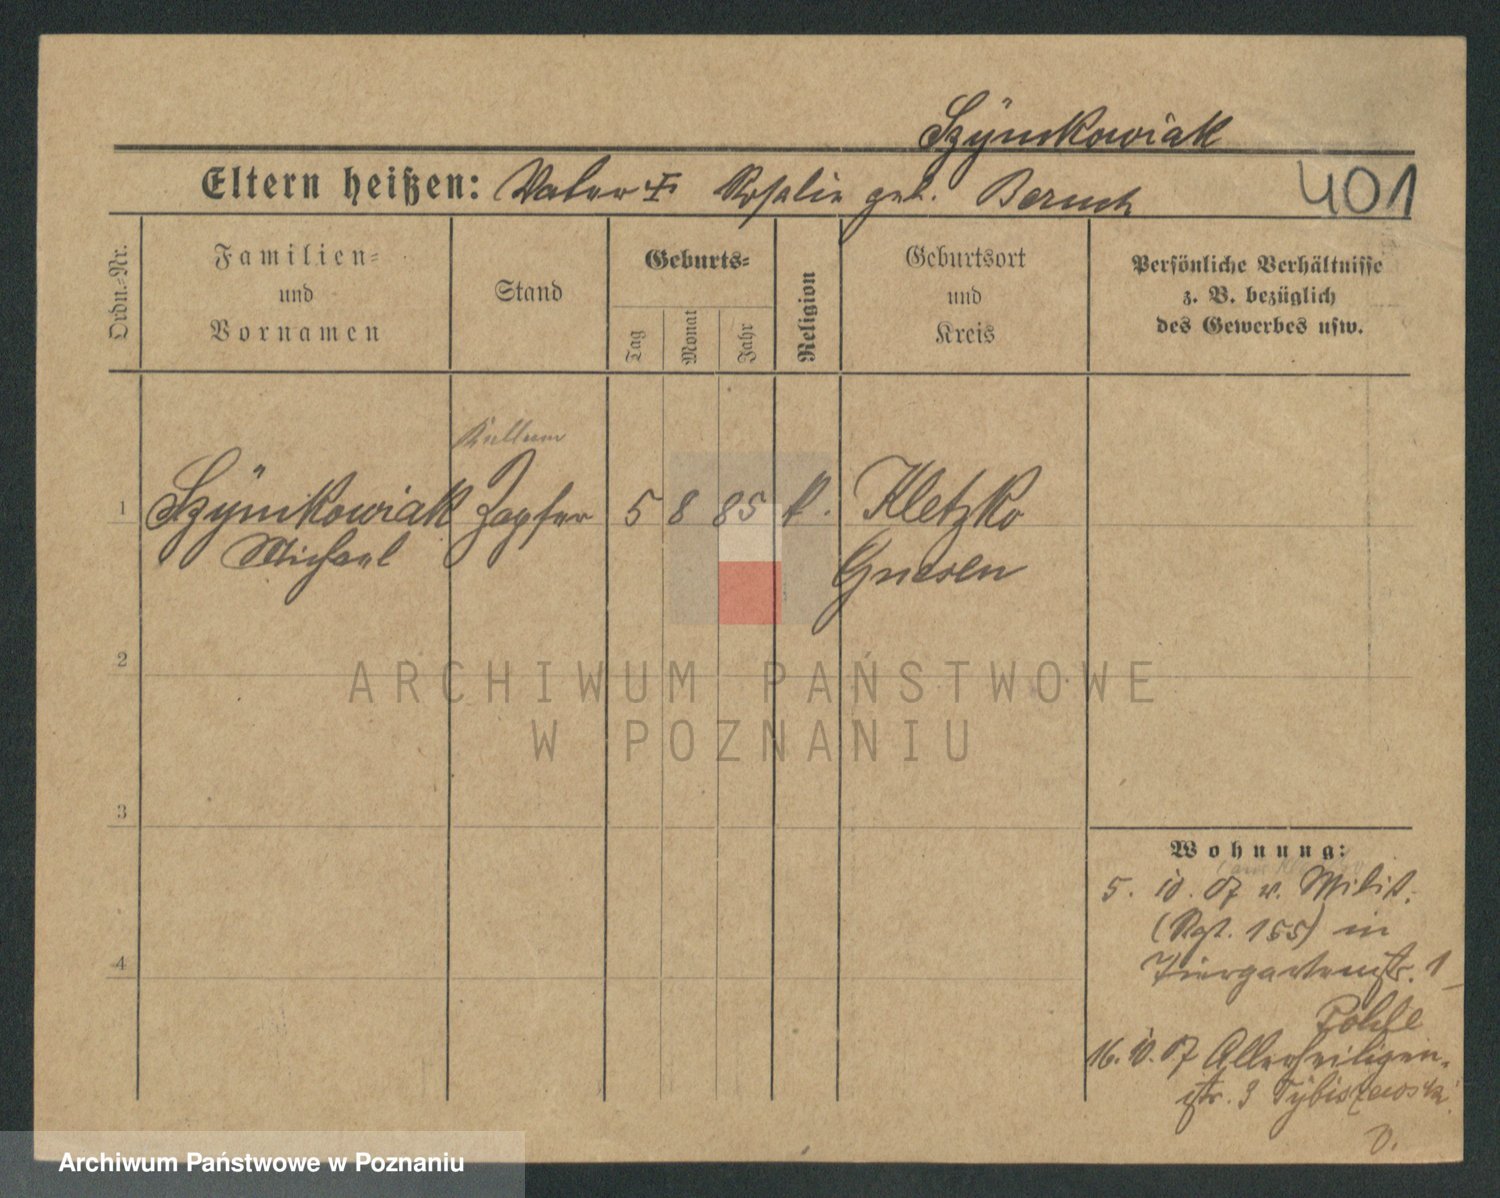 Szÿmkowiak
Eltern heißen: Vater ✝ Rosalie geb. Baruch
401
Ordn.-Nr.
Familien-
und
Vornamen
Stand
Geburts-
Tag
Monat
Jahr
Religion
Geburtsort
und
Kreis
Persönliche Verhältnisse
z. B. bezüglich
des Gewerbes usw.
1
Szÿmkowiak
Michael
Zapfer
5 8 85 k.
Kletzko
Gnesen
2
3
4
Wohnung:
5. 10. 07 v. Milit.
(Rgt. 155) in
Tiergartenstr. 1
16. 10. 07 Allerheiligen-
str. 3
ARCHIWUM PAŃSTWOWE
W POZNANIU
Archiwum Państwowe w Poznaniu